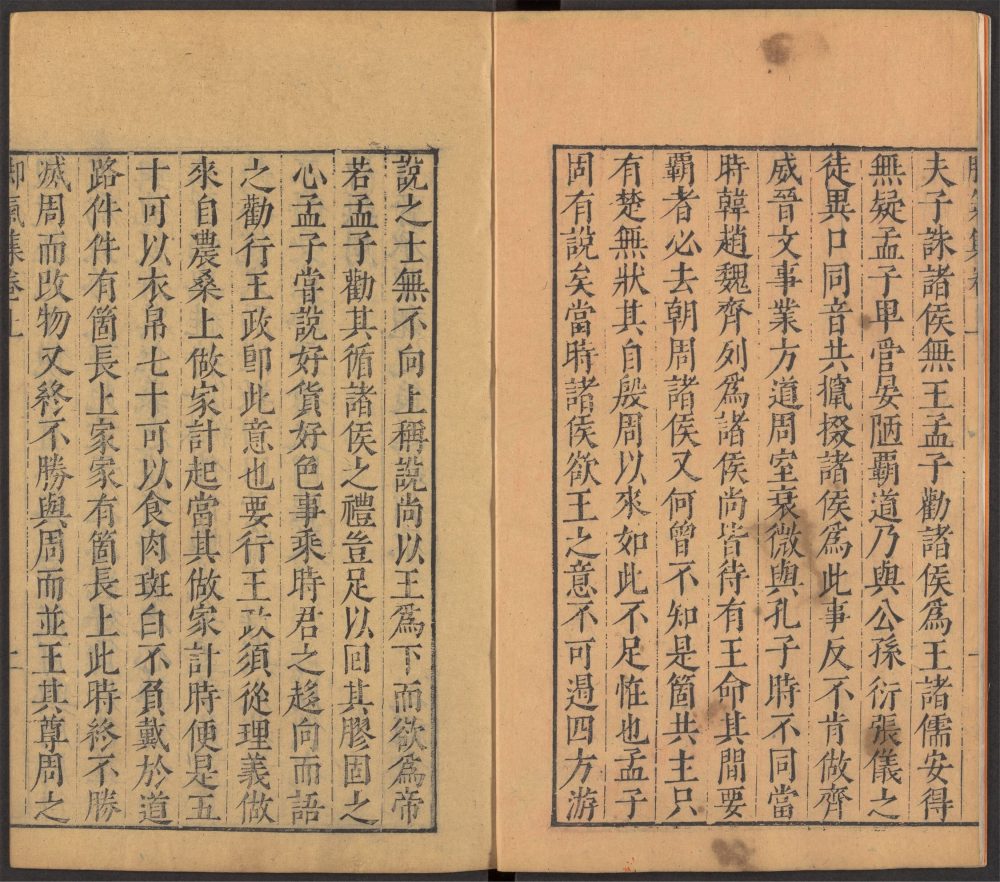 夫子誅諸侯無王孟子勸諸侯爲王諸儒安得
無疑孟子卑管晏陋覇道乃與公孫衍張儀之
徒異口同音共攛掇諸侯爲此事反不肯做齊
威晉文事業方道周室衰微與孔子時不同當
時韓趙魏齊列爲諸侯尚皆待有王命其間要
覇者必去朝周諸侯又何曾不知是箇共主只
有楚無狀其自殷周以來如此不足恠也孟子
固有說矣當時諸侯欲王之意不可遏四方游
說之士無不向上稱說尚以王爲下而欲爲帝
若孟子勸其循諸侯之禮豈足以回其膠固之
心孟子嘗說好貨好色事乘時君之趍向而語
之勸行王政卽此意也要行王政須從理義做
來自農桑上做家計起當其做家計時便是五
十可以衣帛七十可以食肉斑白不負戴於道
路件件有箇長上家家有箇長上此時終不勝
滅周而改物又終不勝與周而並王其尊周之
脚氣集卷上
二